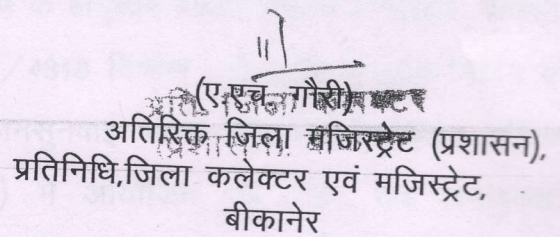 (ए.एच. गौरी)
अतिरिक्त जिला मजिस्ट्रेट (प्रशासन),
प्रतिनिधि,जिला कलेक्टर एवं मजिस्ट्रेट,
बीकानेर